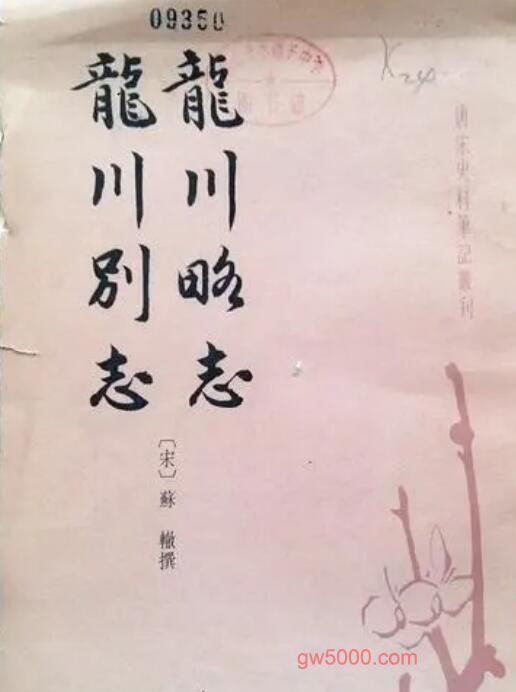 09350
龍川略志
龍川別志
〔宋〕蘇 轍撰
唐宋史料筆記叢刊
gw5000.com